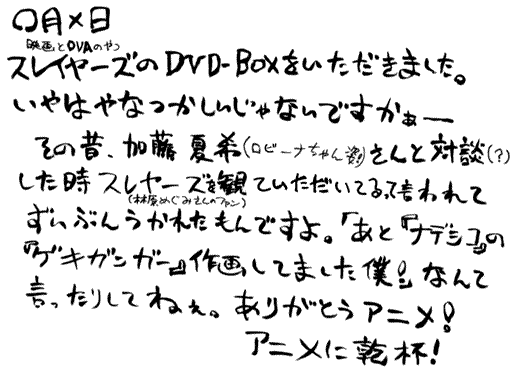 〇月×日
映画とOVAのやつ
スレイヤーズのDVD-BOXをいただきました。
いやはやなつかしいじゃないですかぁー
その昔、加藤夏希(ロビーナちゃん姿)さんと対談(?)
した時スレヤーズを観ていただいてるって言われて
(林原めぐみさんのファン)
ずいぶんうかれたもんですよ。「あと『ナデシコ』の
『ゲキガンガー』作画してました僕!」なんて
言ったりしてねぇ。ありがとうアニメ!
アニメに乾杯!